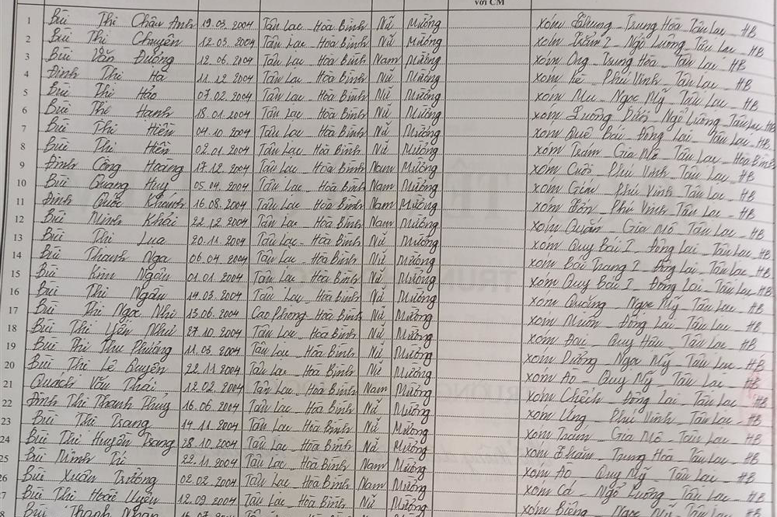 với CM
1 Bùi Thị Châu Anh 19.03.2004 Tân Lạc - Hòa Bình Nữ Mường xóm Chung - Trung Hòa Tân Lạc - HB
2 Bùi Thị Chuyên 12.03.2004 Tân Lạc - Hòa Bình Nữ Mường xóm Trầm I - Ngô Lương Tân Lạc - HB
3 Bùi Văn Đường 12.06.2004 Tân Lạc - Hòa Bình Nam Mường xóm Ong - Trung Hòa - Tân Lạc - HB
4 Đinh Thị Hà 11.12.2004 Tân Lạc - Hòa Bình Nữ Mường xóm Kè - Phú Vinh - Tân Lạc - HB
5 Bùi Thị Hảo 07.02.2004 Tân Lạc - Hòa Bình Nữ Mường xóm Mu - Ngọc Mỹ - Tân Lạc - HB
6 Bùi Thị Hạnh 18.01.2004 Tân Lạc - Hòa Bình Nữ Mường xóm Luông Dưới - Ngô Lương Tân Lạc - HB
7 Bùi Thị Hiền 04.10.2004 Tân Lạc - Hòa Bình Nữ Mường xóm Quê Bái Đông Lai - Tân Lạc - HB
8 Bùi Thị Hiền 02.01.2004 Tân Lạc - Hòa Bình Nữ Mường xóm Trám - Gia Mô - Tân Lạc - Hòa Bình
9 Đinh Công Hoàng 17.12.2004 Tân Lạc - Hòa Bình Nam Mường xóm Cuôi - Phú Vinh - Tân Lạc - HB
10 Bùi Quang Huy 05.04.2004 Tân Lạc - Hòa Bình Nam Mường xóm Giem - Phú Vinh Tân Lạc - HB
11 Đinh Quốc Khánh 16.08.2004 Tân Lạc - Hòa Bình Nam Mường xóm - Phú Vinh Tân Lạc - HB
12 Bùi Minh Khải 22.12.2004 Tân Lạc - Hòa Bình Nam Mường xóm Quyền - Gia Mô - Tân Lạc - HB
13 Bùi Thị Lụa 20.11.2004 Tân Lạc - Hòa Bình Nữ Mường xóm Quy Bái I - Đông Lai - Tân Lạc - HB
14 Bùi Thanh Nga 06.04.2004 Tân Lạc - Hòa Bình Nữ Mường xóm Bái Trang I - Đông Lai - Tân Lạc - HB
15 Bùi Kim Ngân 01.01.2004 Tân Lạc - Hòa Bình Nữ Mường xóm Quy Bái I - Đông Lai - Tân Lạc - HB
16 Bùi Thị Ngân 14.03.2004 Tân Lạc - Hòa Bình Nữ Mường xóm Quảng - Ngọc Mỹ - Tân Lạc - HB
17 Bùi Ngọc Nhi 13.06.2004 Cao Phong - Hòa Bình Nữ Mường xóm - Đông Lai - Tân Lạc - HB
18 Bùi Thị Yến Như 27.10.2004 Tân Lạc - Hòa Bình Nữ Mường xóm - Quy Hậu - Tân Lạc - HB
19 Bùi Thị Thu Phương 11.03.2004 Tân Lạc - Hòa Bình Nữ Mường xóm - Ngọc Mỹ - Tân Lạc - HB
20 Bùi Thị Lê Quyên 22.11.2004 Tân Lạc - Hòa Bình Nữ Mường xóm Ào - Quy Mỹ - Tân Lạc - HB
21 Quách Văn Thái 12.02.2004 Tân Lạc - Hòa Bình Nam Mường xóm Chiềch - Đông Lai Tân Lạc - HB
22 Đinh Thị Thanh Thúy 16.06.2004 Tân Lạc - Hòa Bình Nữ Mường xóm Ưng - Phú Vinh - Tân Lạc - HB
23 Bùi Thị Trang 14.11.2004 Tân Lạc - Hòa Bình Nữ Mường xóm Trám - Gia Mô - Tân Lạc - HB
24 Bùi Thị Huyền Trang 28.10.2004 Tân Lạc - Hòa Bình Nữ Mường xóm - Trung Hòa - Tân Lạc - HB
25 Bùi Minh Tú 22.11.2004 Tân Lạc - Hòa Bình Nam Mường xóm Ào - Quy Mỹ - Tân Lạc - HB
26 Bùi Xuân Trường 02.02.2004 Tân Lạc - Hòa Bình Nam Mường xóm Cá - Ngổ Luông - Tân Lạc - HB
27 Bùi Thị Hoài Uyên 12.09.2004 Tân Lạc - Hòa Bình Nữ Mường xóm - Ngọc Mỹ - Tân Lạc - HB